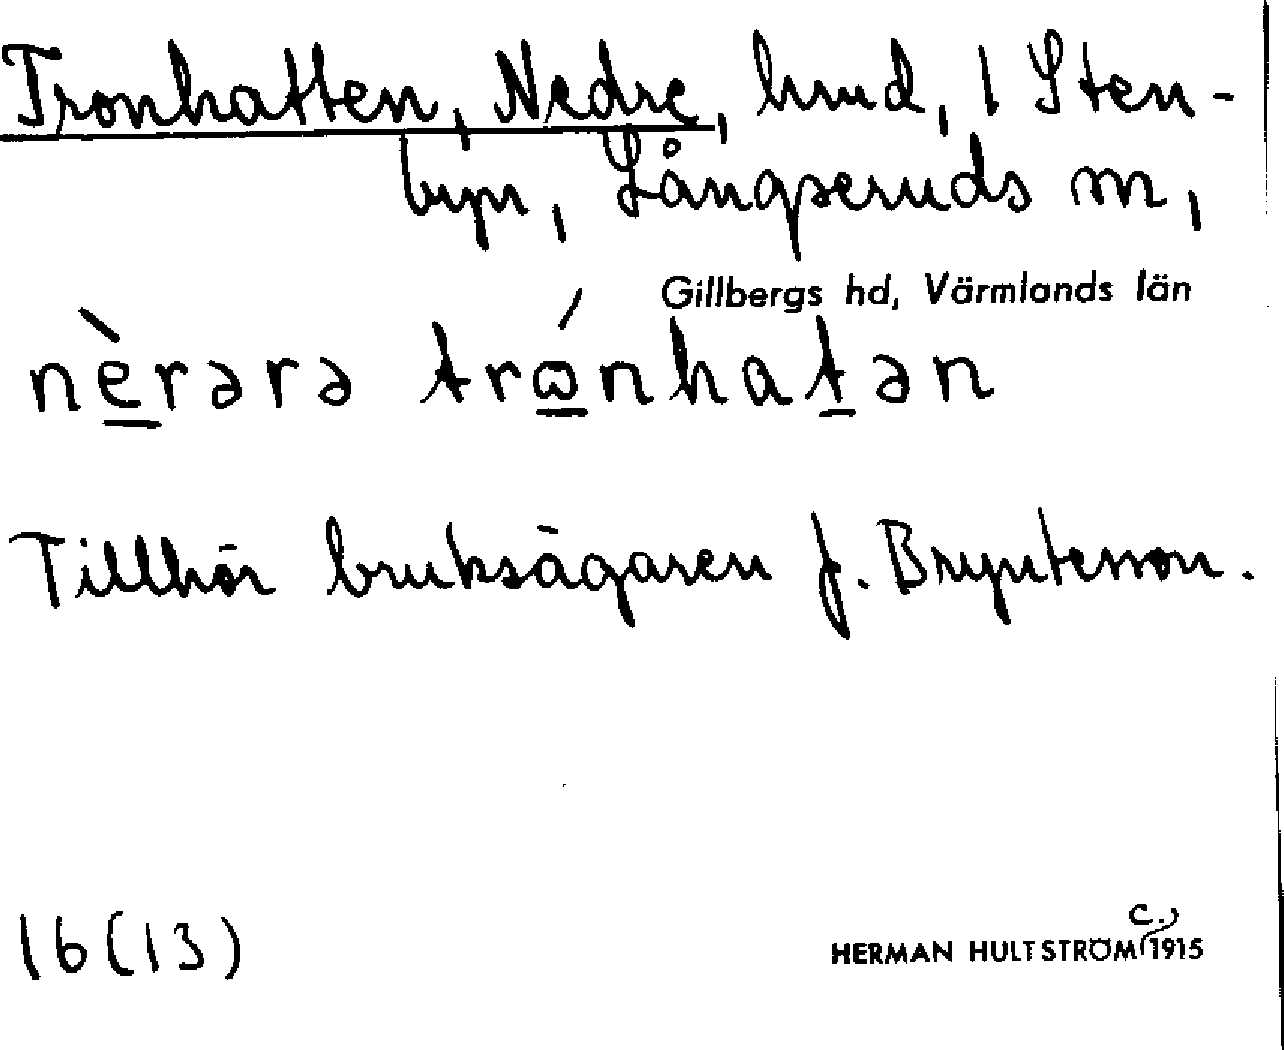 Tronhatten, Nedre, hmd, 1 Sten-
byn, Långseruds sn,
Gillbergs hd, Värmlands län
nè̱rərə trώ̱nhaṯən
Tillhör bruksägaren J. Bryntesson.
16 (13)
HERMAN HULTSTRÖM c. 1915